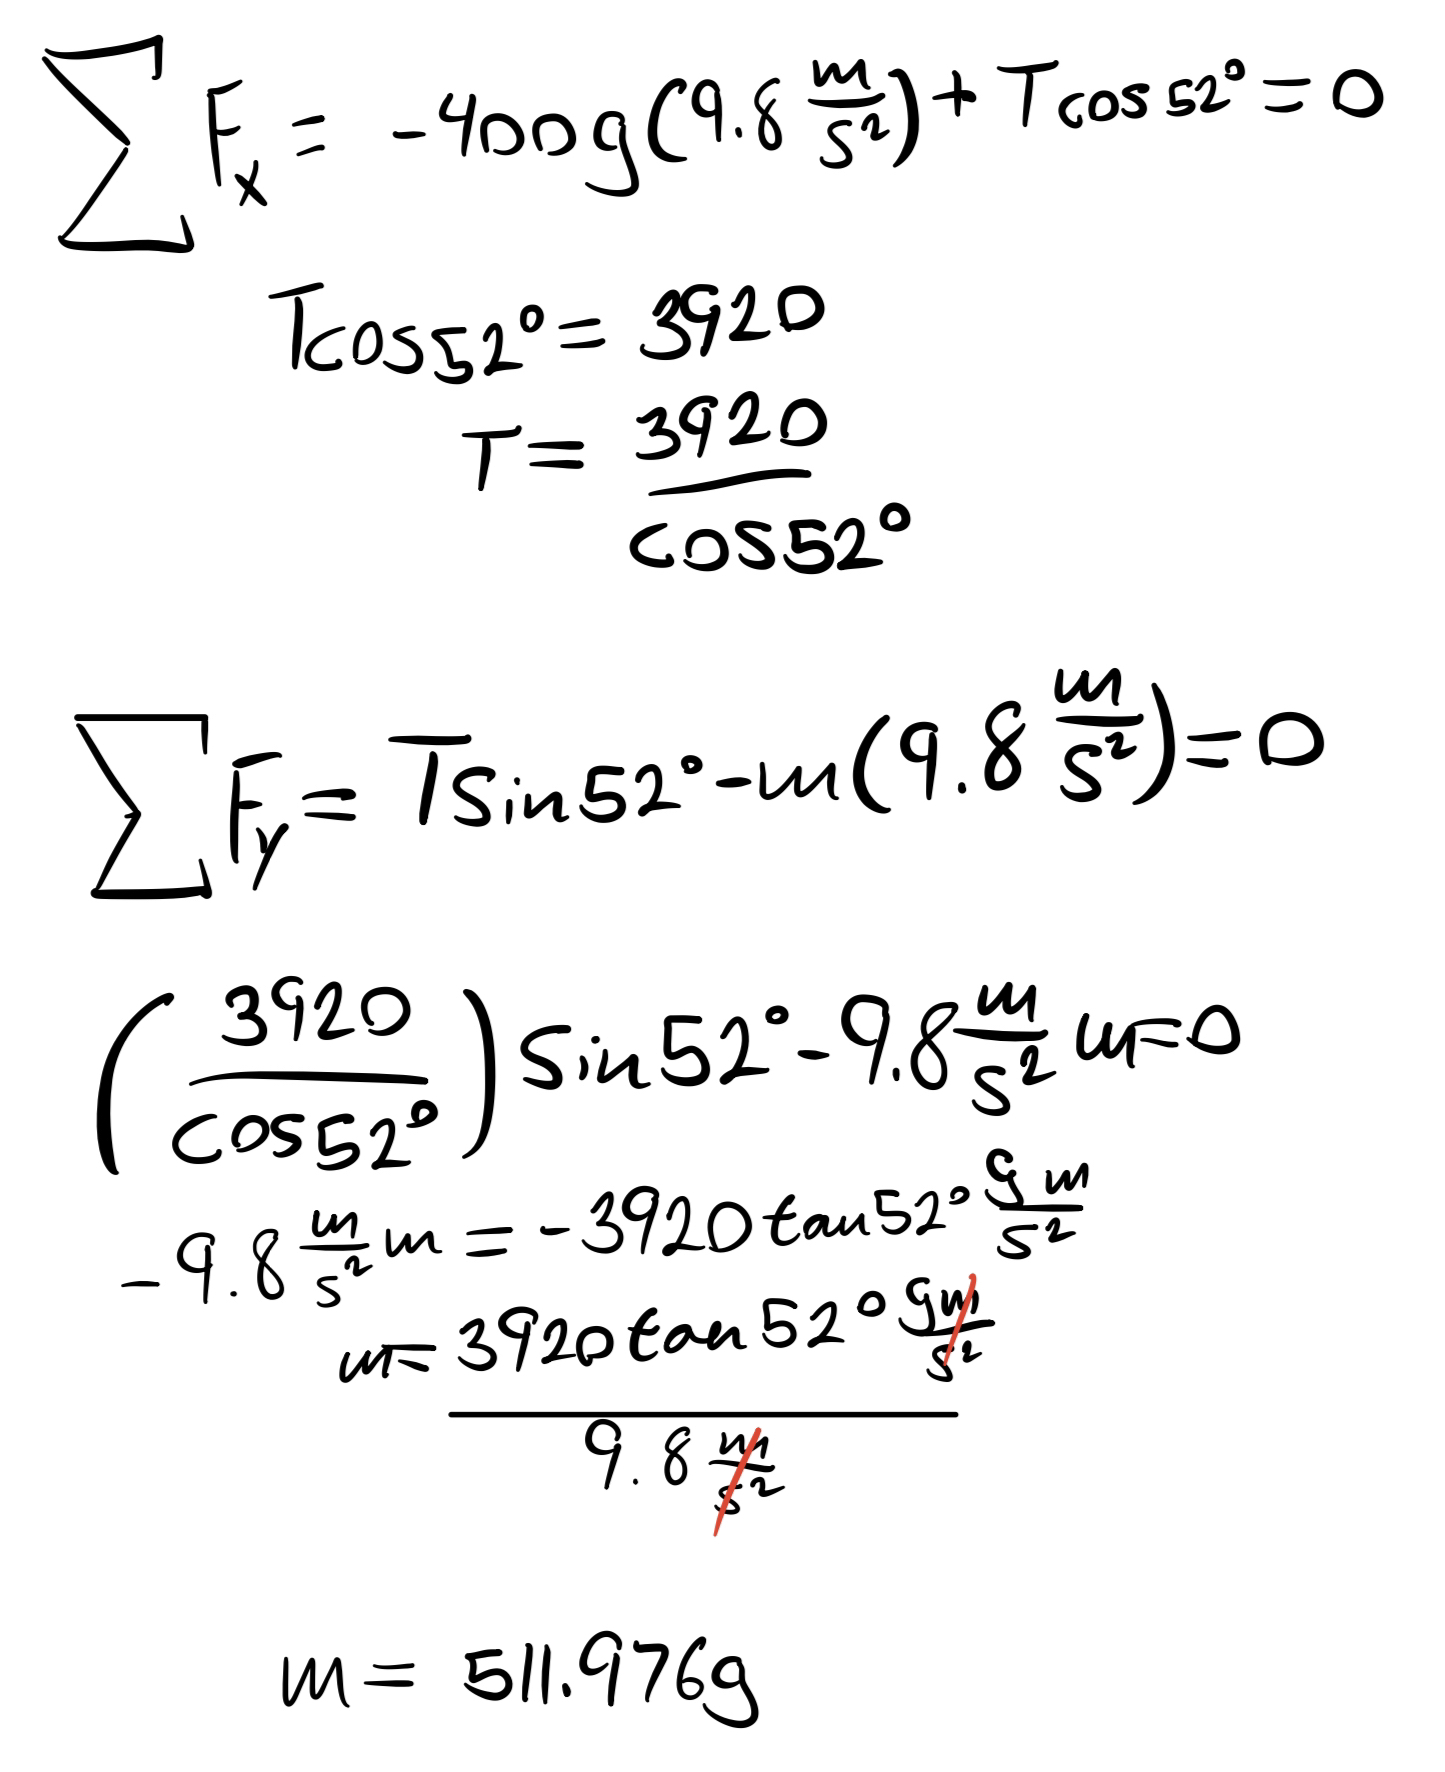 ∑Fₓ = -400g(9.8 m/s²) + Tcos52° = 0
Tcos52° = 3920
T = 3920/cos52°
∑Fᵧ = Tsin52° - m(9.8 m/s²) = 0
(3920/cos52°) sin52° - 9.8 m/s² m = 0
-9.8 m/s² m = -3920 tan52° gm/s²
m = 3920 tan52° gm/s² / 9.8 m/s²
m = 511.976g